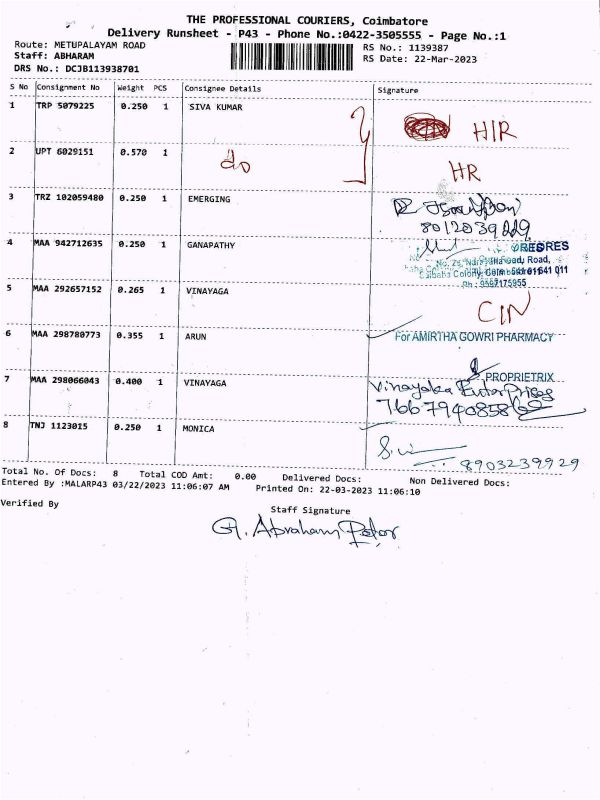 THE PROFESSIONAL COURIERS, Coimbatore
Delivery Runsheet - P43 - Phone No.:0422-3505555 - Page No.:1
Route: METUPALAYAM ROAD RS No.: 1139387
Staff: ABHARAM RS Date: 22-Mar-2023
DRS No.: DCJB113938701
S No Consignment No Weight PCS Consignee Details Signature
1 TRP 5079225 0.250 1 SIVA KUMAR HIR
2 UPT 6029151 0.570 1 do HR
3 TRZ 102059480 0.250 1 EMERGING
8012039229
4 MAA 942712635 0.250 1 GANAPATHY
Road,
Saibaba Colony, 641 011
Ph : 9567175955
5 MAA 292657152 0.265 1 VINAYAGA CIN
6 MAA 298780773 0.355 1 ARUN For AMIRTHA GOWRI PHARMACY
PROPRIETRIX
7 MAA 298066043 0.400 1 VINAYAGA Vinayaka EnterPrises
7667940858
8 TNJ 1123015 0.250 1 MONICA
8903239929
Total No. Of Docs: 8 Total COD Amt: 0.00 Delivered Docs: Non Delivered Docs:
Entered By :MALARP43 03/22/2023 11:06:07 AM Printed On: 22-03-2023 11:06:10
Verified By Staff Signature
G. Abraham Peter